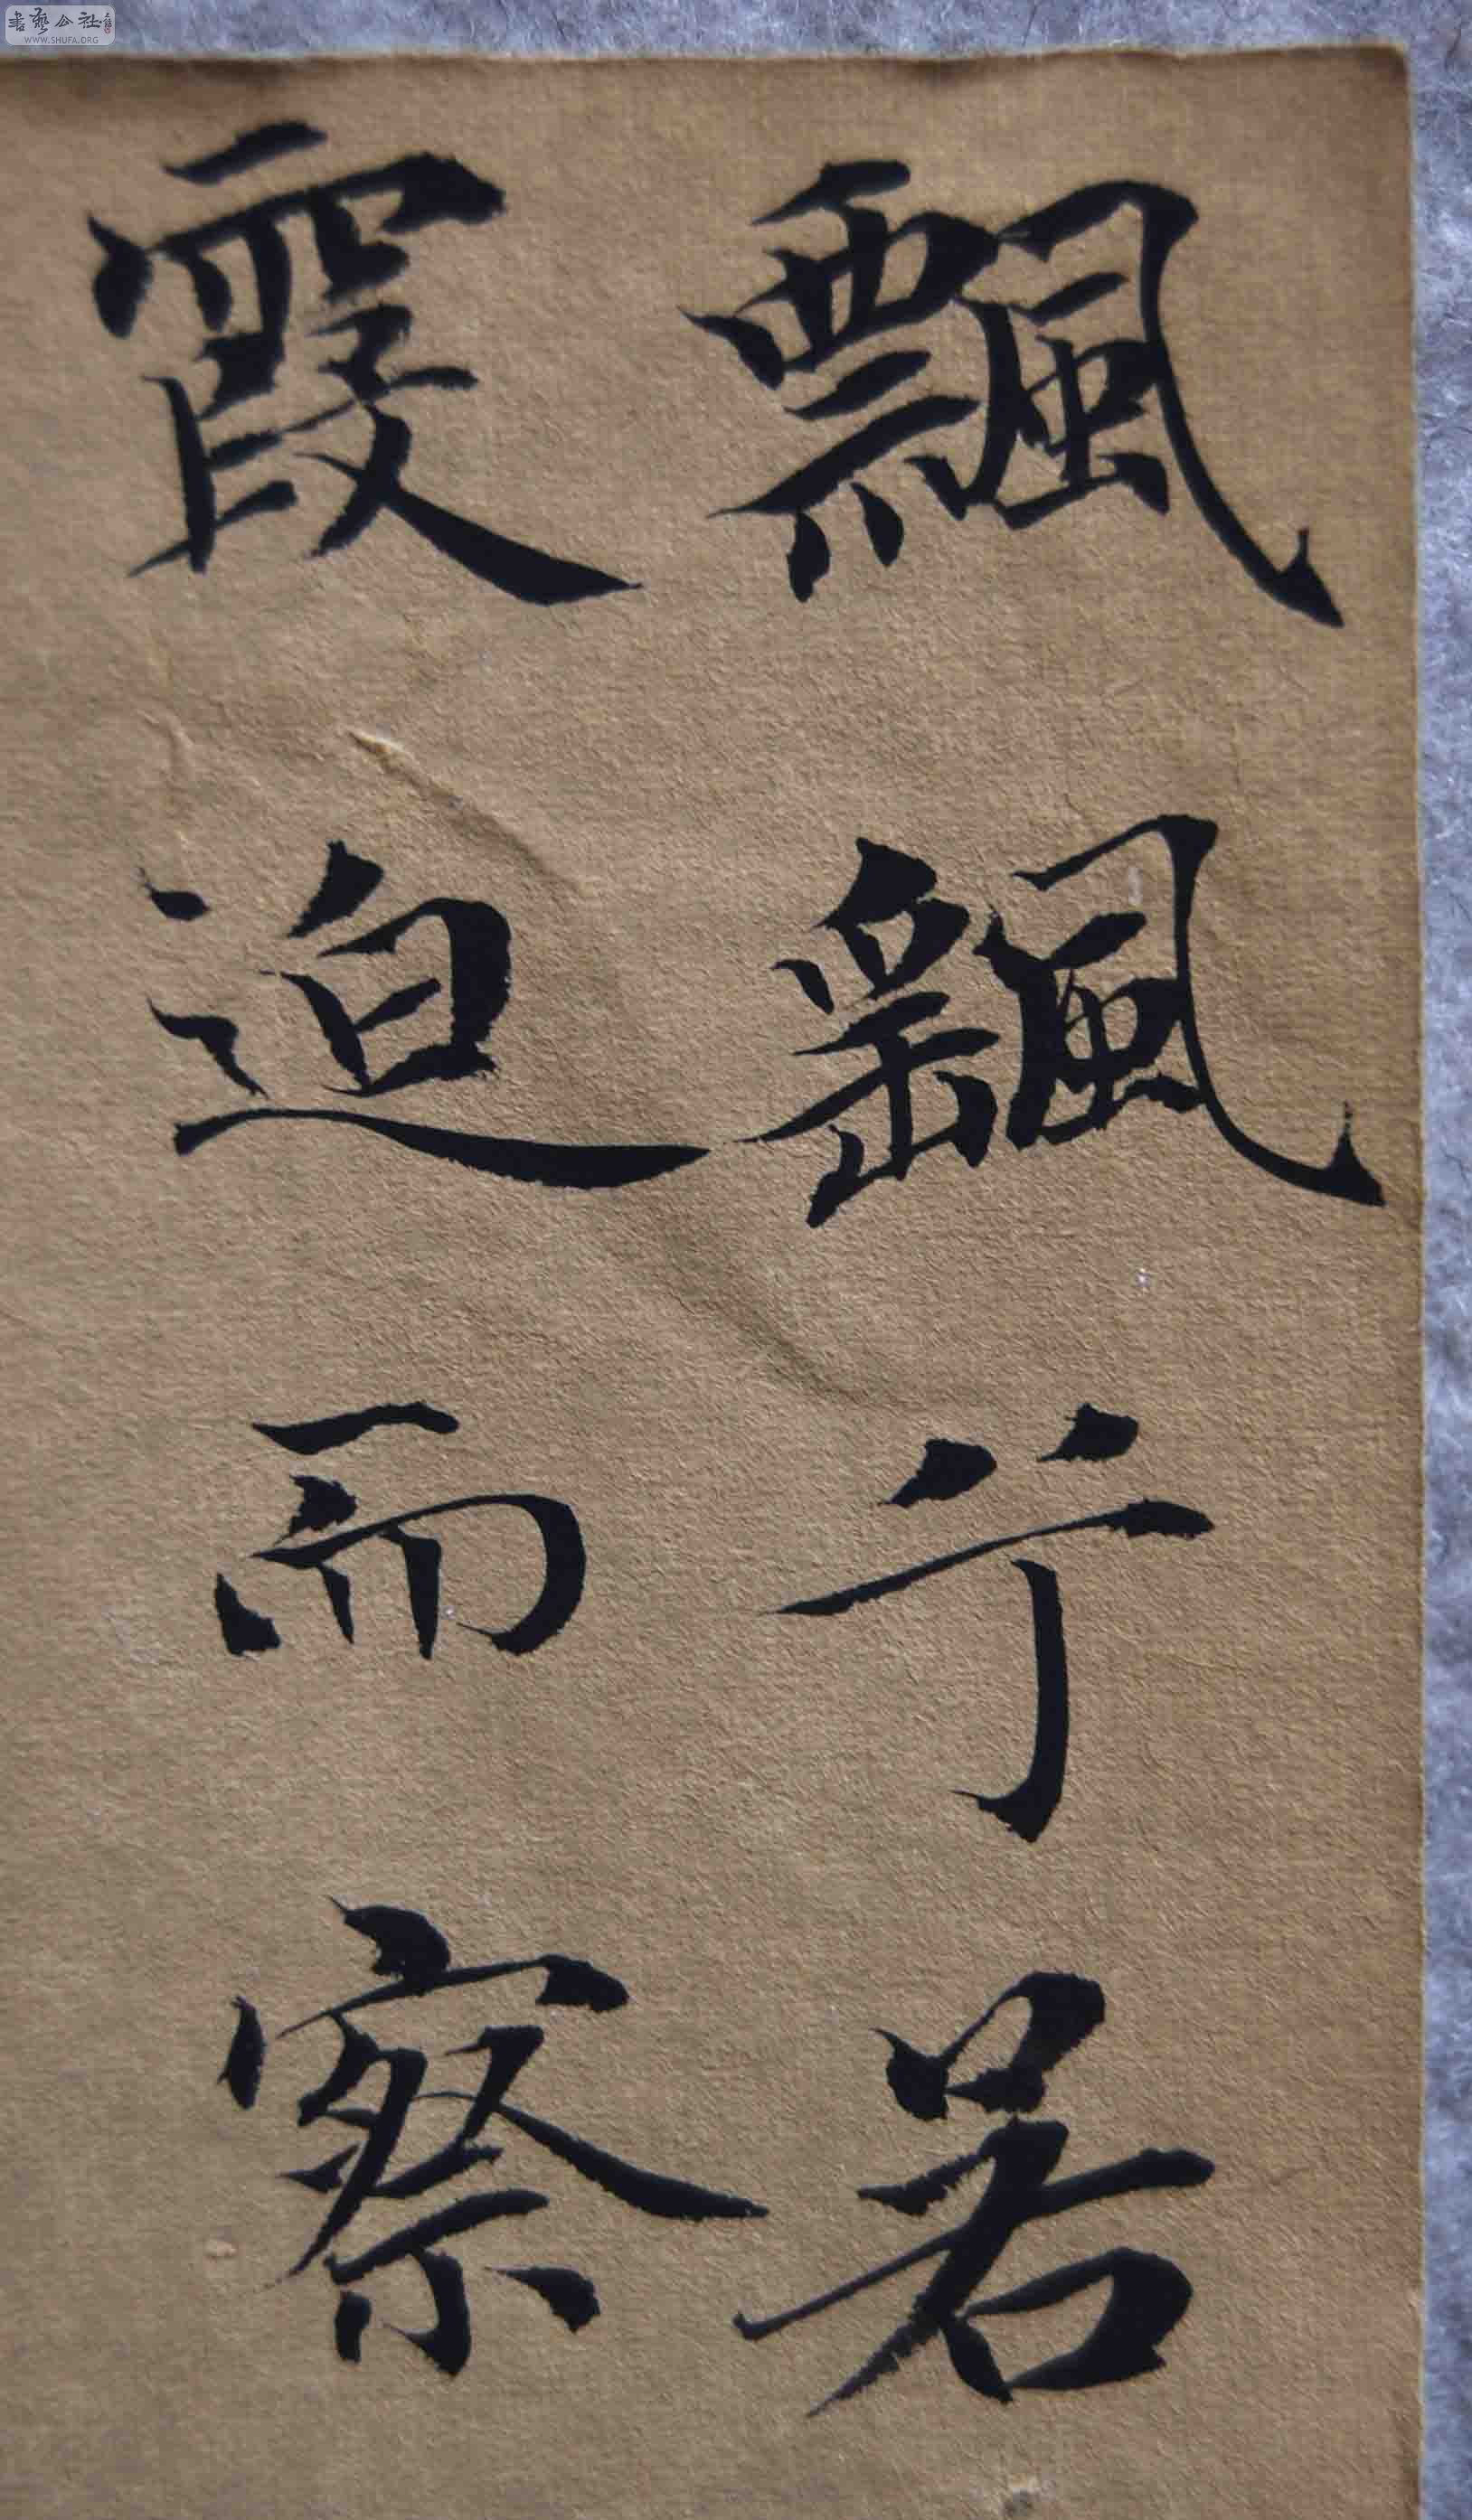 飄飖兮若
霞迫而察
書藝公社
WWW.SHUFA.ORG